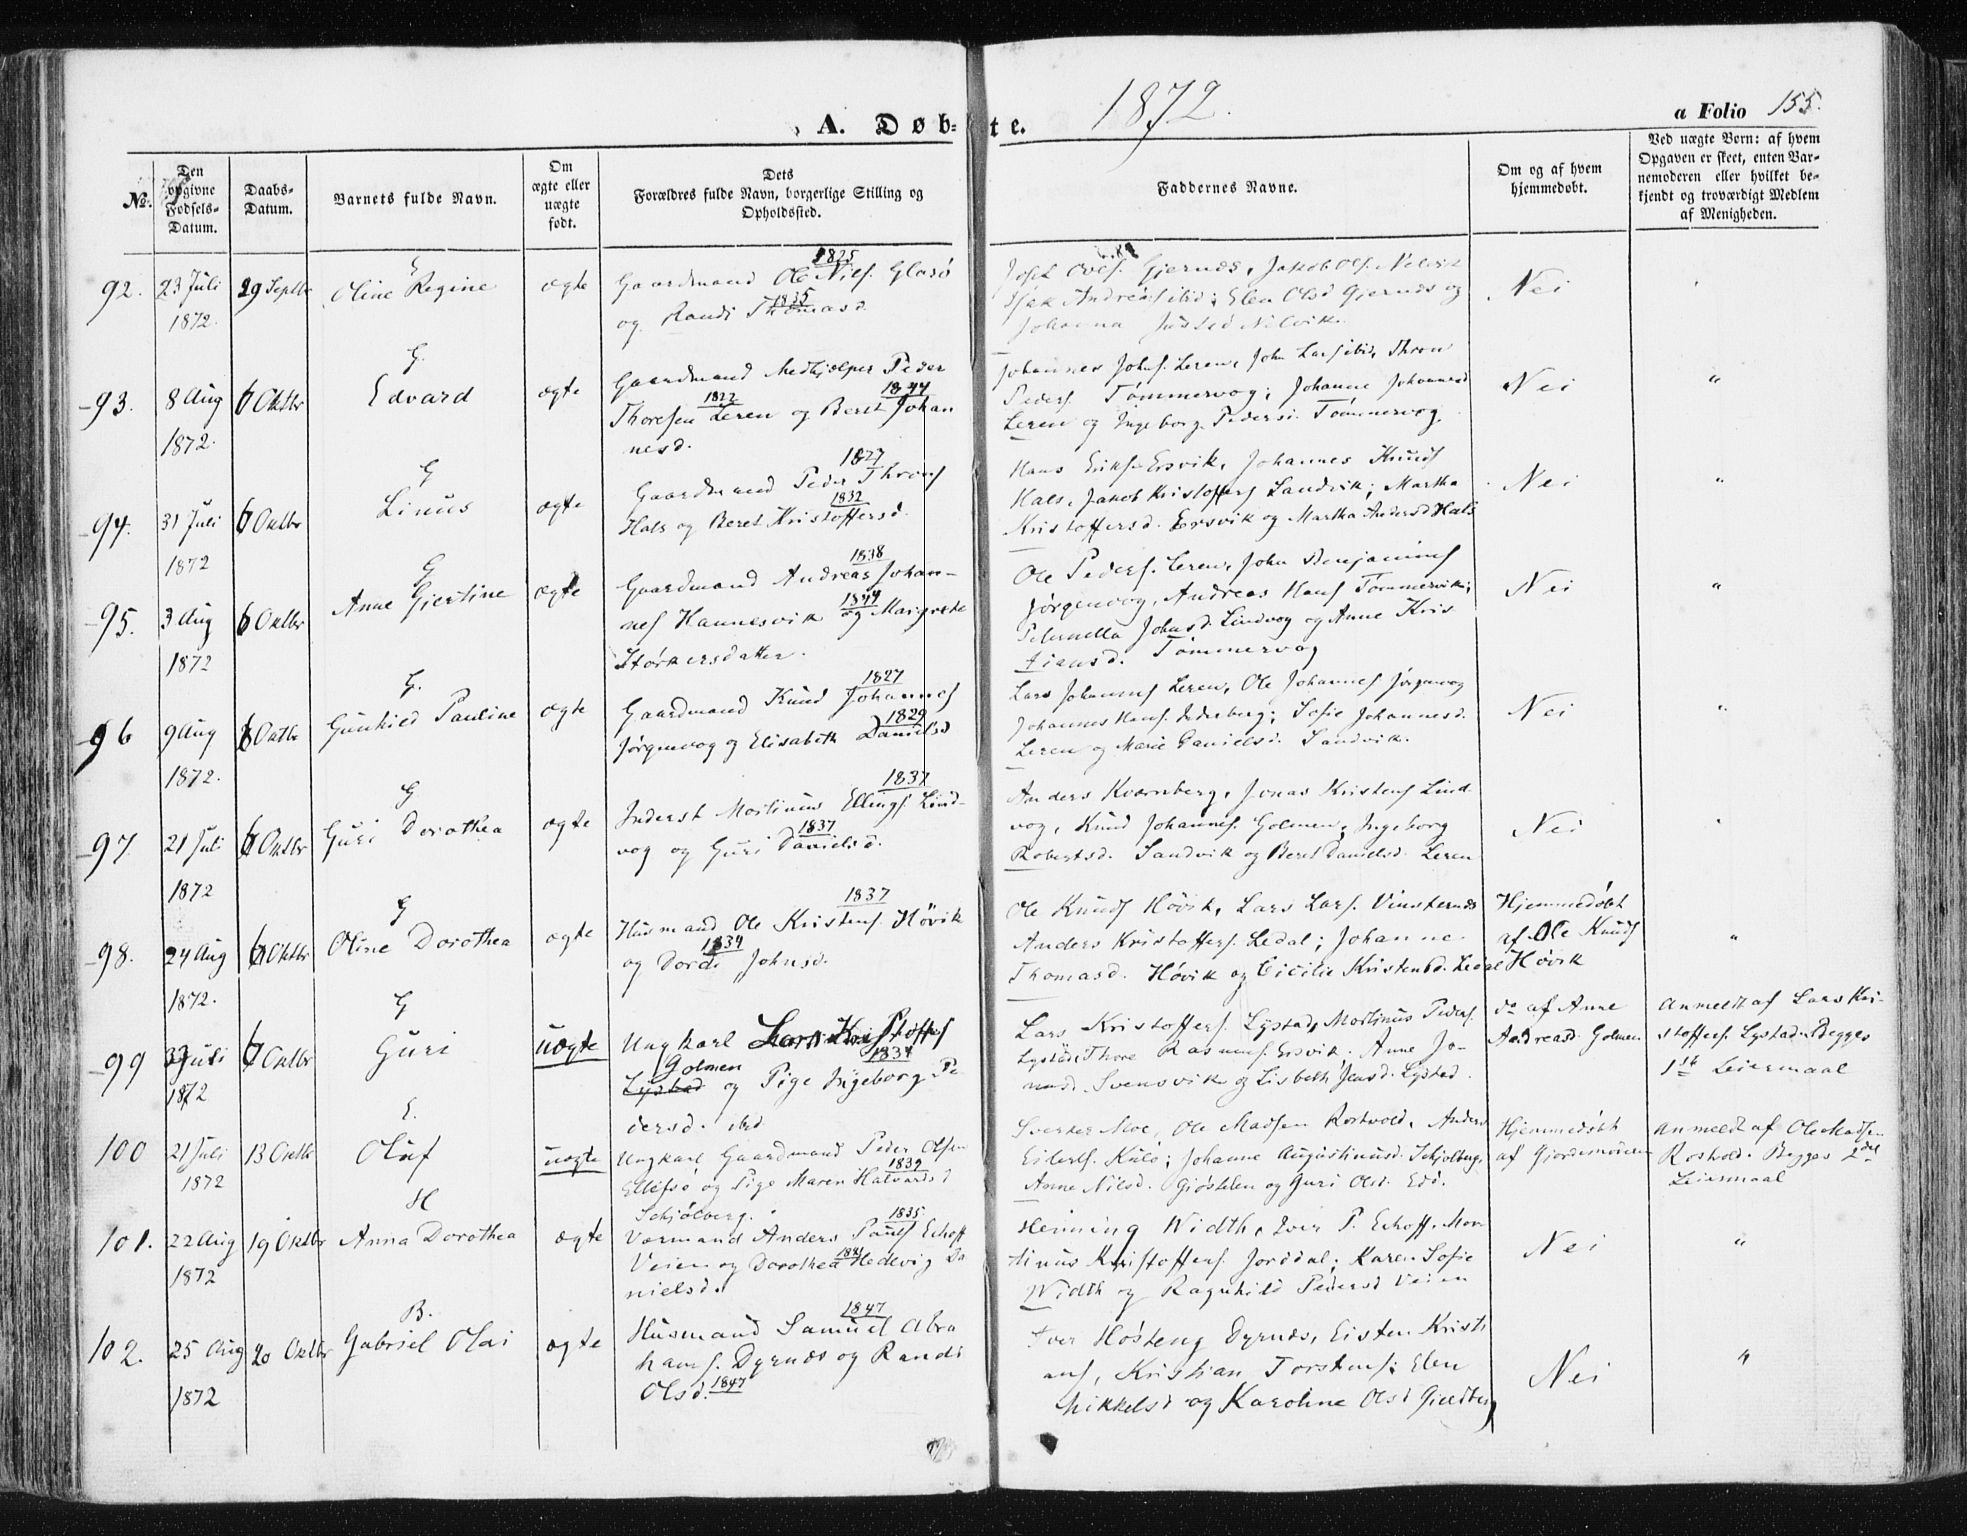 A. Døb-te. 1872. a Folio 155.
No.
Den opgivne Fødsels-Datum.
Daabs-Datum.
Barnets fulde Navn.
Om ægte eller uægte født.
Dets Forældres fulde Navn, borgerlige Stilling og Opholdssted.
Faddernes Navne.
Om og af hvem hjemmedøbt.
Ved uægte Børn: af hvem Opgaven er skeet, enten Barnemoderen eller hvilket bekjendt og troværdigt Medlem af Menigheden.
92. 23 Juli 1872. 29 Septbr
E
Oline Regine
ægte
1825
Gaardmand Ole Nils. Glasø
1835
og Randi Thomasd.
Gjernes, Jakob Ols.
Isak Andreas. ibid; Elen Olsd Gjernes og
Johanna Nelvik.
Nei
93. 8 Aug 1872. 6 Oktbr
G.
Edvard
ægte
Gaardmand Medhjelper Peder
1822 1844
Thoresen Leren og Beret Johan
nesd.
Johannes Johns. Leren, John Lars. ibid, Thron
Peders. Tømmervog; Johanne Johannesd
Leren og Ingeborg Pedersd. Tømmervog.
Nei
"
94. 31 Juli 1872 6 Oktbr
G
Linus
ægte
1827
Gaardmand Peder Throns
1832
Hals og Beret Kristoffersd.
Hans Eriks. Ersvik, Johannes Knuds
Hals, Jakob Kristoffers Sandvik; Martha
Kristoffersd. Ersvik og Martha Andersd Hals
Nei
"
95. 3 Aug 1872 6 Oktbr
G
Anne Gjertine
ægte
1838
Gaardmand Andreas Johan-
1844
nes Hannesvik og Margrete
Størkersdatter.
Ole Peders. Leren, John Benjamins
Jørgenvog, Andreas Hans Tømmervik;
Peternella Johnsd. Lindvog og Anne Kris
tiansd. Tømmervog
Nei
"
96 9 Aug 1872. 6 Oktbr
G.
Gunhild Pauline
ægte
1827
Gaardmand Knud Johannes
1829
Jørgenvog og Elisabeth Danielsd
Lars Johannes Leren, Ole Johannes Jørgenvog
Johannes Hans. Sofie Johannesd.
Leren og Marie Danielsd. Sandvik.
Nei
"
97. 21 Juli 1872 6 Oktbr
G
Guri Dorothea
ægte
1837
Inderst Martinus Ellings. Lind-
1837
vog og Guri Danielsd.
Anders Kvernberg, Jonas Kristens Lind
vog, Knud Johannes. Golmen, Ingeborg
Robertsd. Sandvik og Beret Danielsd. Leren
Nei
"
98. 24 Aug 1872. 6 Oktbr
G
Oline Dorothea
ægte
1837
Husmand Ole Kristens. Høvik
1834
og Dordi Johnsd.
Ole Knuds Høvik, Lars Lars. Vinsternes
Anders Kristoffers. Ledal; Johanne
Thomasd. Høvik og Cicilie Kristensd. Ledal
Hjemmedøbt
af Ole Knuds
Høvik
"
99 Juli 1872 Oktbr
G
Guri
uægte
Ungkarl Lars Kristoffers
Golmen 1834
Lystad og Pige Ingeborg Pe
dersd. ibid
Lars Kristoffers. Lystad, Martinus Peders.
Lystad, Thore Rasmus. Ersvik. Anne Jo-
nasd. Svensvik og Lisbeth Jensd. Lystad.
do af Anne
Andreasd. Golmen
Anmeldt af Lars Kri-
stoffers. Lystad. Begges
1ste Leiermaal
100 21 Juli 1872 13 Oktbr
E.
Oluf
uægte
Ungkarl Gaardmand Peder Olsen
1839
Ellefsø og Pige Maren Halvardsd
Schjølberg.
Sverker Moe, Ole Madsen Rostvold, Anders
Eilerts. Kulø; Johanne Augustinusd. Schjølberg,
Anne Nilsd. og Guri Olsd. Edø.
Hjemmedøbt
af Gjordemoderen
Anmeldt af Ole Madsen
Rosvold. Begges 2det
Leiermaal
101. 22 Aug 1872 19 Oktbr
H
Anna Dorothea
ægte
1835
Vormand Anders Pauls Echoff
1841
Veien og Dorothea Hedevig Da
nielsd.
Henning Width, Iver P. Echoff. Mar
tinus Kristoffers. Jorddal; Karen Sofie
Width og Ragnhild Pedersd Veien
Nei
"
102. 25 Aug 1872 20 Oktbr
B.
Gabriel Olai
ægte
1847
Husmand Samuel Abra
hams. Dyrnes og Randi
Olsd. 1847
Iver Høsteng Dyrnes, Eisten Kristi
ans, Kristian Torstens; Elen
Mikkelsd og Karoline Olsd Gjedberg
Nei
"